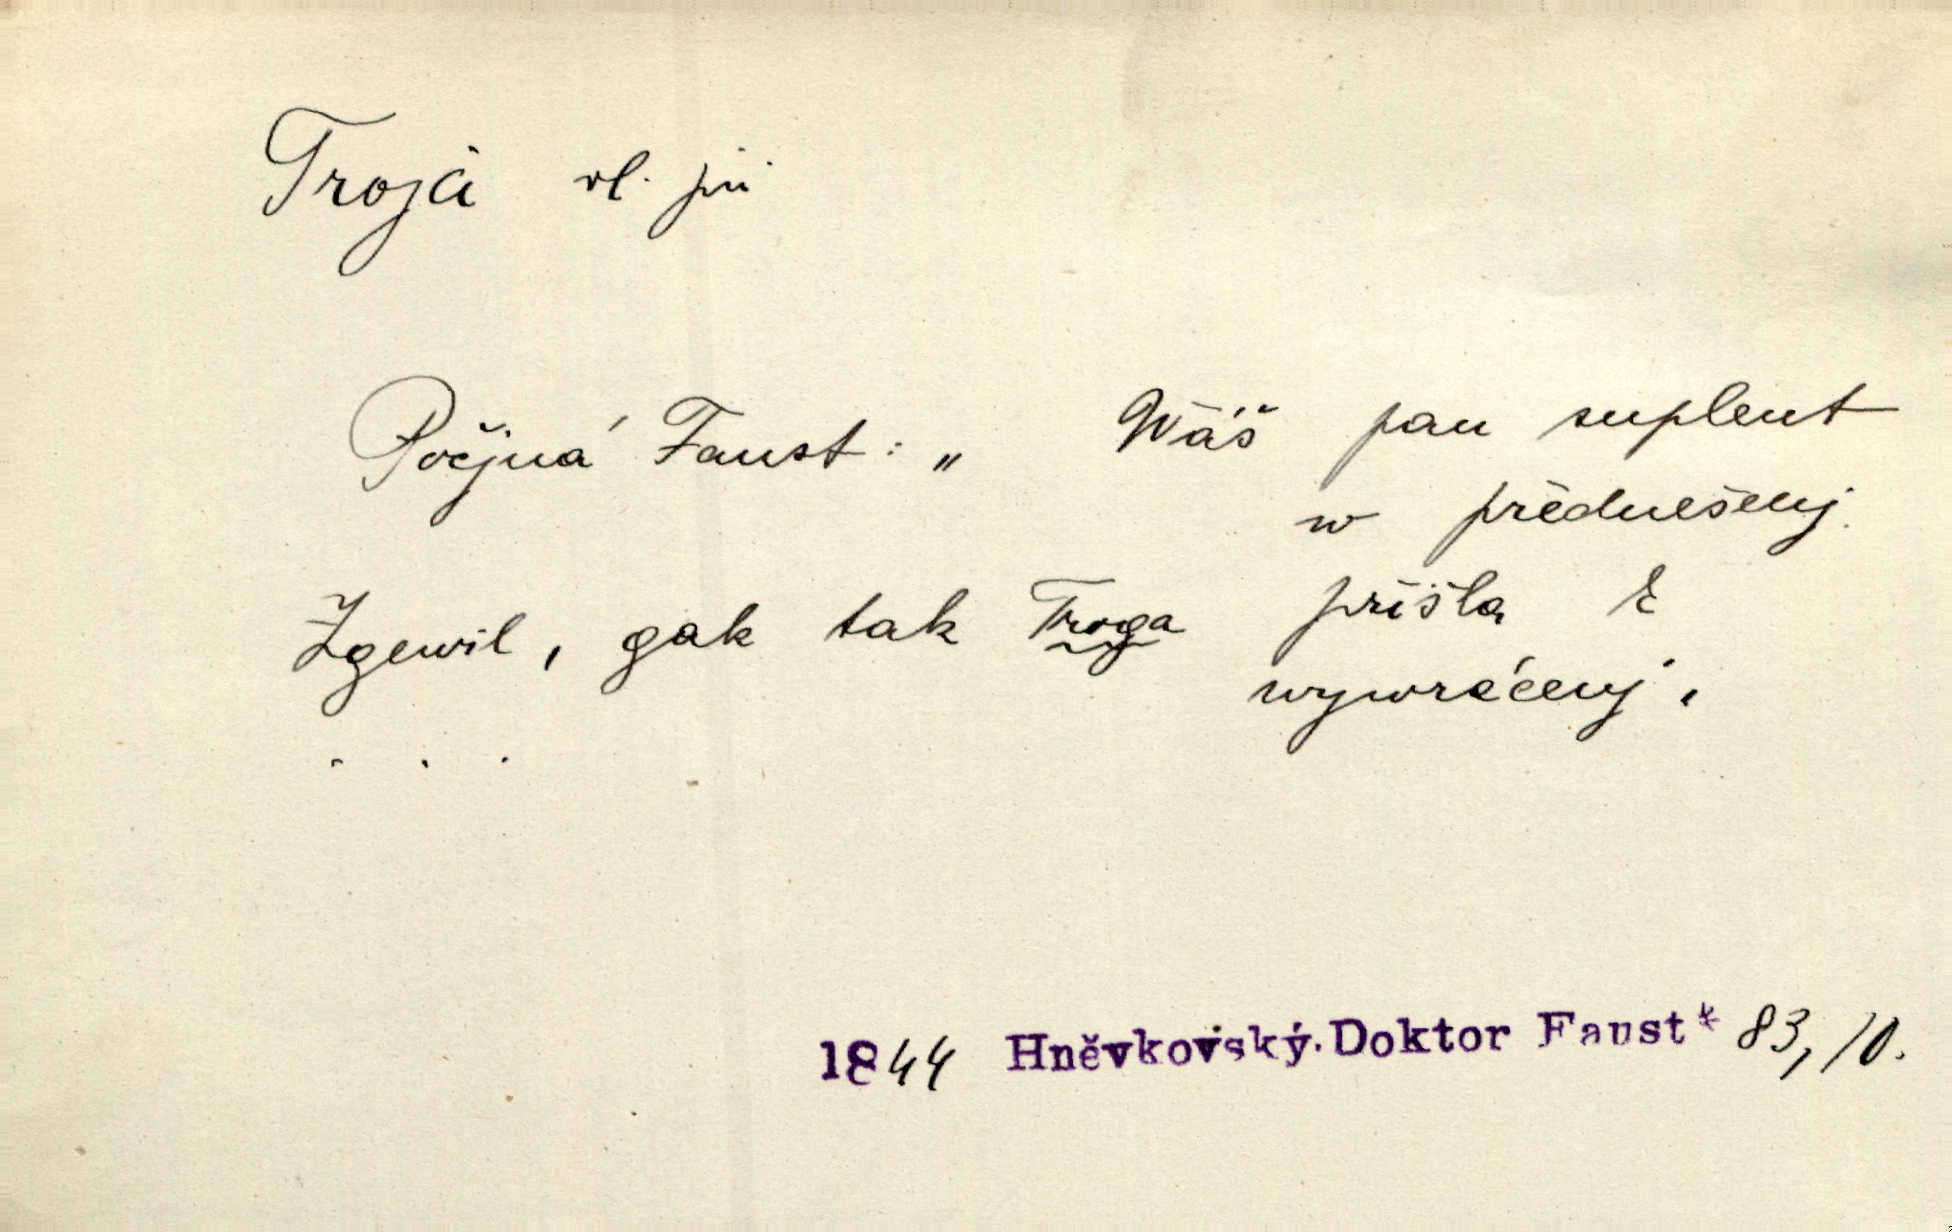 Troja vl. jm
Počjná Faust: „ Wáš pan suplent
w přednešenj
Zgewil, gak tak Troga přišla k
wywrácenj,
. . .
1844 Hněvkovský. Doktor Faust* 83, 10.